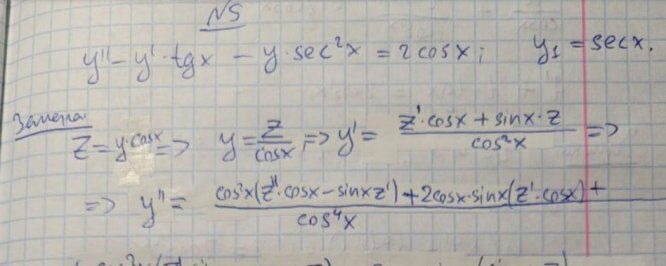 N5
y'' - y' · tgx - y · sec²x = 2cosx; y₁ = secx.
Замена
z = y·cosx => y = z/cosx => y' = (z'·cosx + sinx·z)/cos²x =>
=> y'' = (cos²x(z''·cosx - sinx z') + 2cosx·sinx(z'·cosx) +)/cos⁴x